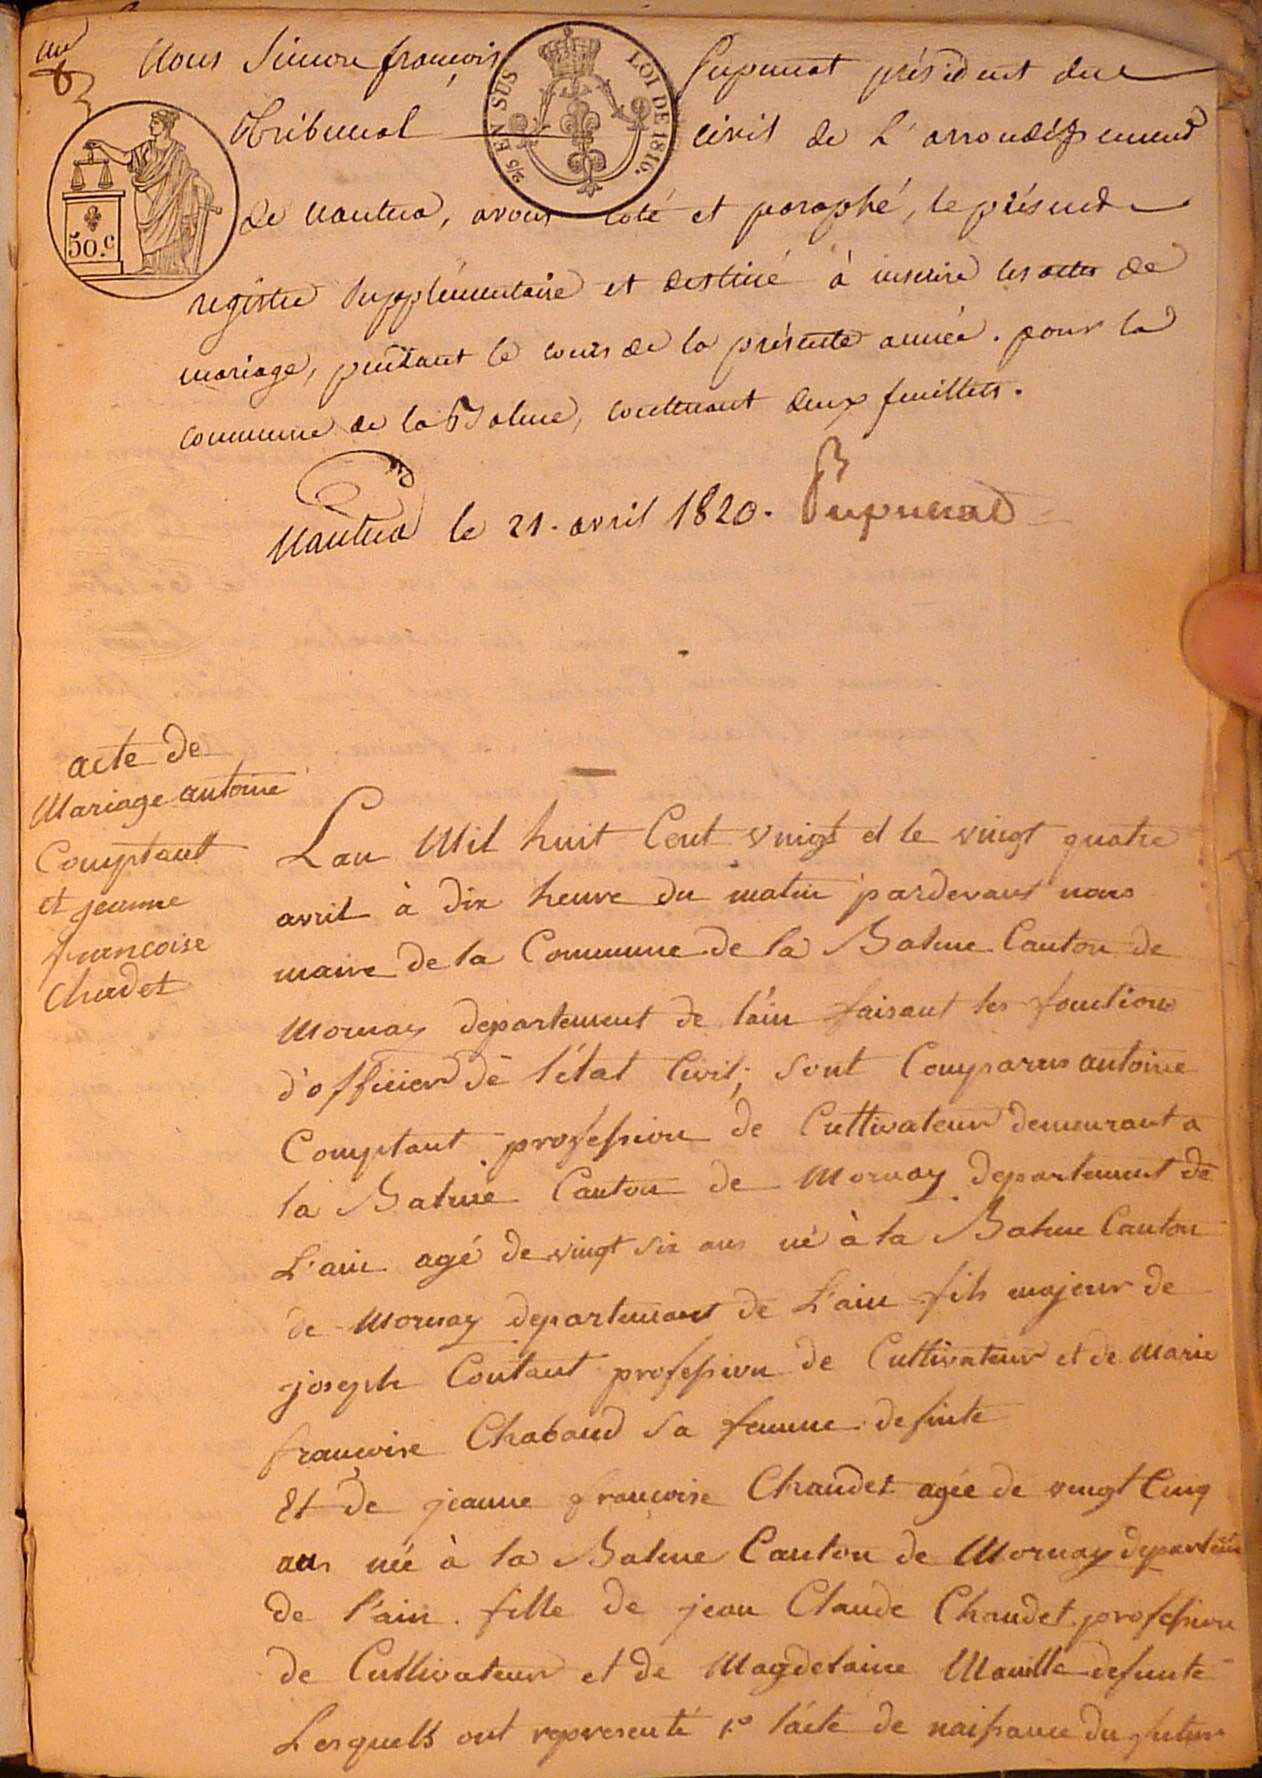 un
Nous Simon françois Pupunat président du
Tribunal civil de L'arrondissement
de Nantua, avons coté et paraphé, le présent
registre supplémentaire et destiné à inscrire les actes de
mariage, pendant le cours de la présente année. pour la
commune de la Balme, contenant deux feuillets.
Nantua le 21. avril 1820. Pupunat
2/5 EN SUS
LOI DE 1816.
50.c
acte de
Mariage antoine
Comptant
et jeanne
francoise
Chadet
Lan Mil huit Cent vingt et le vingt quatre
avril à dix heure du matin pardevant nous
maire de la Commune de la Balme Canton de
Mornay departement de l'ain faisant les fonctions
d'officier de l'état Civil; sont Comparus antoine
Comptant profession de Cultivateur demeurant a
la Balme Canton de Mornay departement de
L'ain agé de vingt six ans né à la Balme Canton
de Mornay departement de L'ain fils majeur de
joseph Contant profession de Cultivateur et de Marie
francoise Chaband sa femme definte
Et de jeanne francoise Chaudet agée de vingt Cinq
ans née à la Balme Canton de Mornay departement
de l'ain. fille de jean Claude Chaudet profession
de Cultivateur et de Magdelaine defunte
Lesquels ont representé 1.o l'acte de naissance du futur